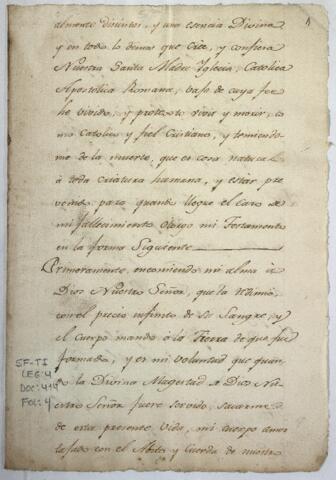 1
almente distintas, y una esencia Divina
y en todo lo demas que Cree, y confiesa
Nuestra Santa Madre Yglesia, Catolica
Apostolica Romana, bajo de cuya fee
he vivido, y protexto vivir y morir, co
mo Catolico y fiel Cristiano, y temiendo
me de la muerte, que es cosa natural
à toda criatura humana, y estar pre
venido para quando llegue el caso de
mi fallecimiento otorgo mi Testamento
en la forma Siguiente
Primeramente, encomiendo mi alma à
Dios Nuestro Señor, que la redimió
con el precio infinito de su Sangre, y
el Cuerpo mando à la Tierra de que fue
formado, y es mi voluntad que quan
do la Divina Magestad de Dios Nu
estro Señor fuere servido, sacarme
de esta presente Vida, mi cuerpo amor
tajado con el Abito y Cuerda de nuestro
SF-TI
LEG:4
DOC:414
FOL:4